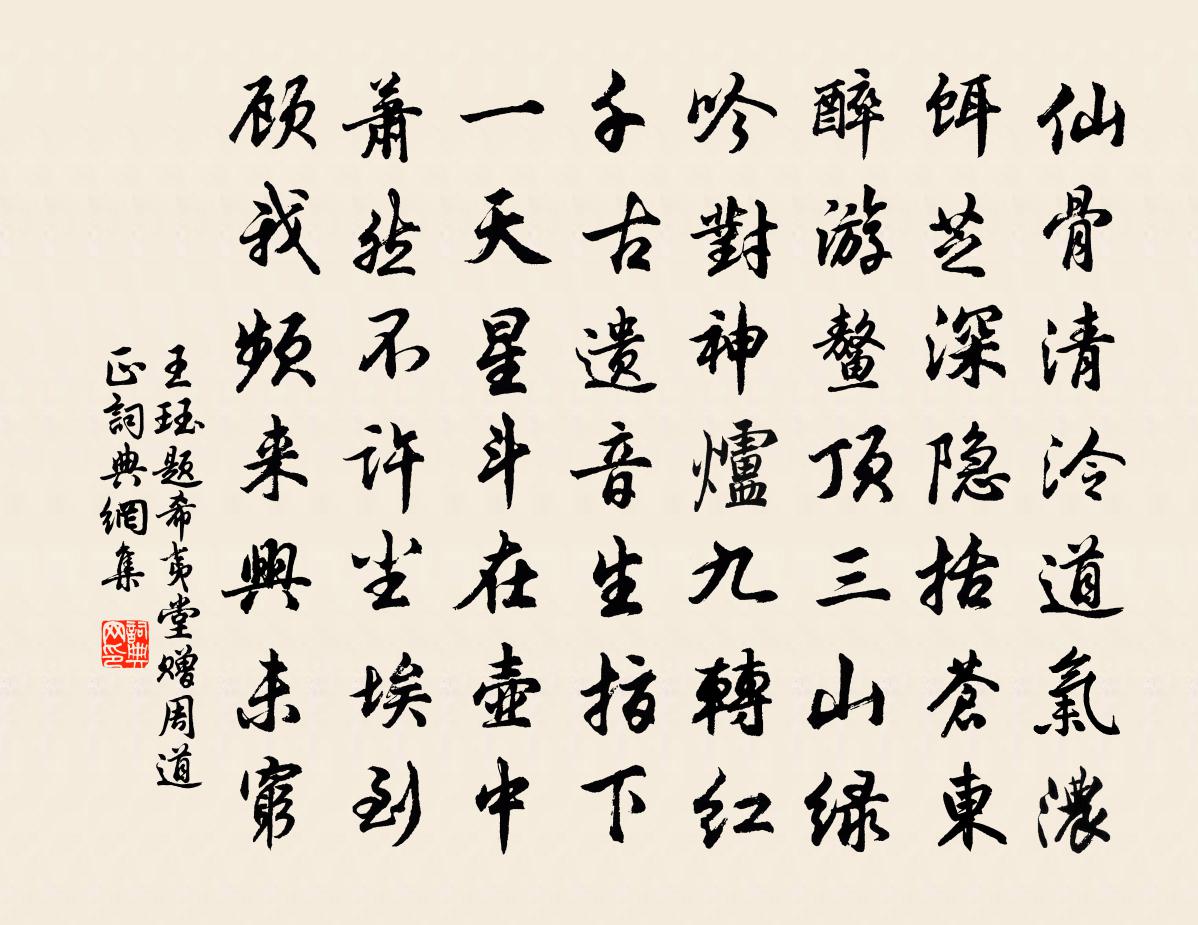 仙骨清泠道氣濃
餌芝深隐括蒼東
醉游鰲顶三山緑
吟對神爐九轉红
千古遗音生指下
一天星斗在壺中
蕭然不許尘埃到
顾我频来興未窮
王珏题希夷堂赠周道
正詞典網集
詞典网印